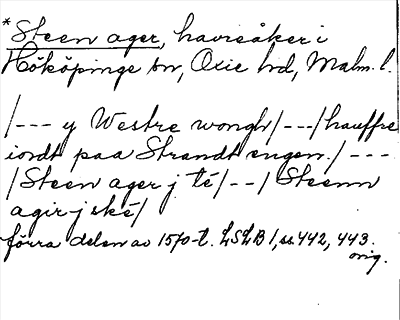 *Steen ager, havreåker i
Hököpinge sn, Oxie hd, Malm. l.
/--- y Westre wongh/---/hauffue
iordt paa Strandt engen./---
/Steen ager j té/--/Steenn
agir j ské/
förra delen av 1570-t. LSLB 1, ss. 442, 443.
orig.